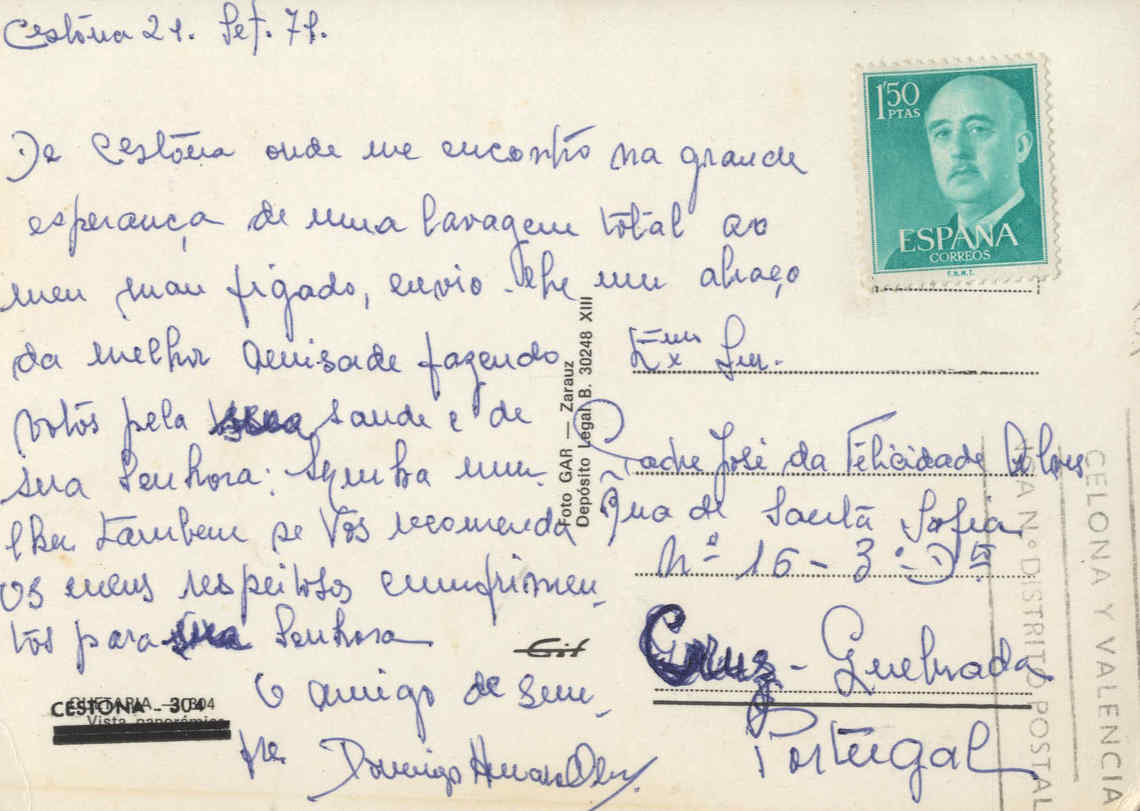 Cestóna 21. Set. 71.
De Cestóna onde me encontro na grande
esperança de uma lavagem total ao
meu mau figado, envio-lhe um abraço
da melhor amisade fazendo
votos pela sua saude e de
sua Senhora: minha mu-
lher tambem se vos recomenda
os meus respeitosos cumprimen-
tos para sua Senhora
O amigo de sem-
pre
Domingo
1'50
PTAS
ESPAÑA
CORREOS
F.N.M.T.
Exmo Snr.
Padre José da Felicidade Alves
Rua de Santa Sofia
Nº 16 - 3º D
Cruz - Quebrada
Portugal
Foto GAR — Zarauz
Depósito Legal B. 30248 XIII
CESTONA - 304
GUETARIA - 304
Vista panorámica
CELONA Y VALENCIA
Nº DISTRITO POSTAL